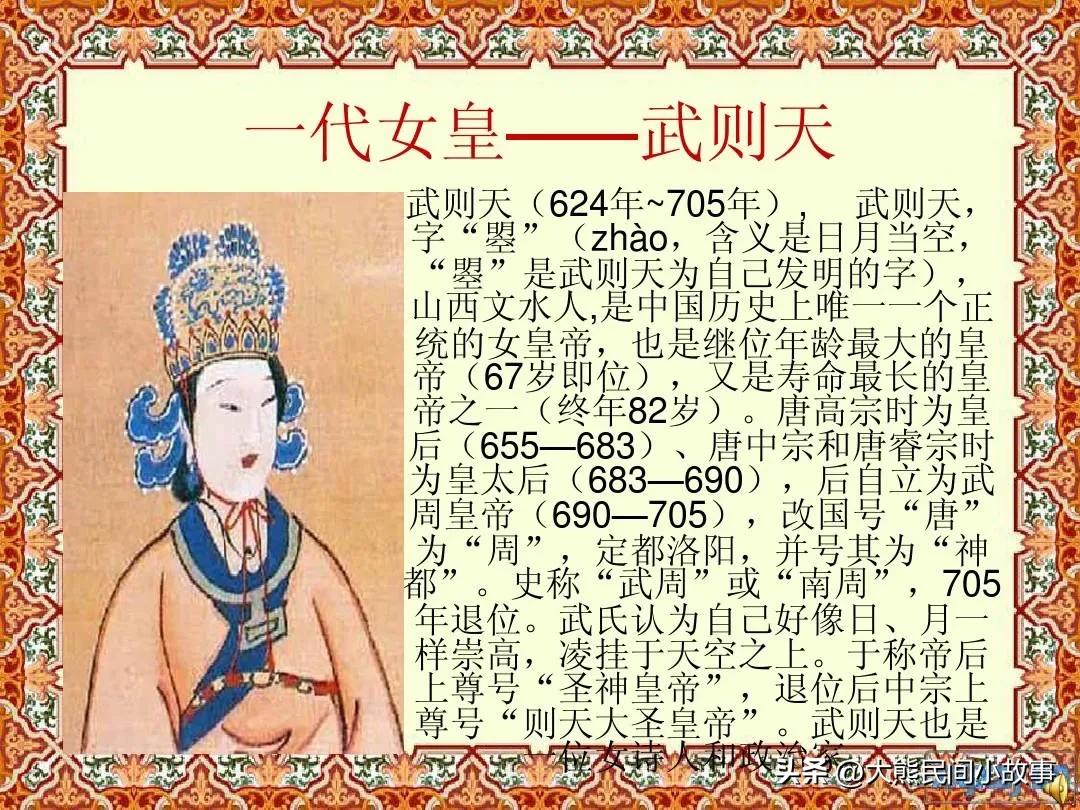 一代女皇——武则天
武则天（624年~705年）， 武则天，
字“曌”（zhào，含义是日月当空，
“曌”是武则天为自己发明的字），
山西文水人,是中国历史上唯一一个正
统的女皇帝，也是继位年龄最大的皇
帝（67岁即位），又是寿命最长的皇
帝之一（终年82岁）。唐高宗时为皇
后（655—683）、唐中宗和唐睿宗时
为皇太后（683—690），后自立为武
周皇帝（690—705），改国号“唐”
为“周”，定都洛阳，并号其为“神
都”。史称“武周”或“南周”，705
年退位。武氏认为自己好像日、月一
样崇高，凌挂于天空之上。于称帝后
上尊号“圣神皇帝”，退位后中宗上
尊号“则天大圣皇帝”。武则天也是
位女诗人和政治家
头条 @大熊民间小故事